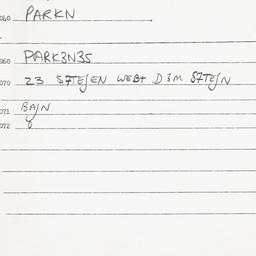 060 PARKN
060 PARK3N3S
070 23 S7TEJEN WEBT D3M S7TEJN
071 BAJN
072